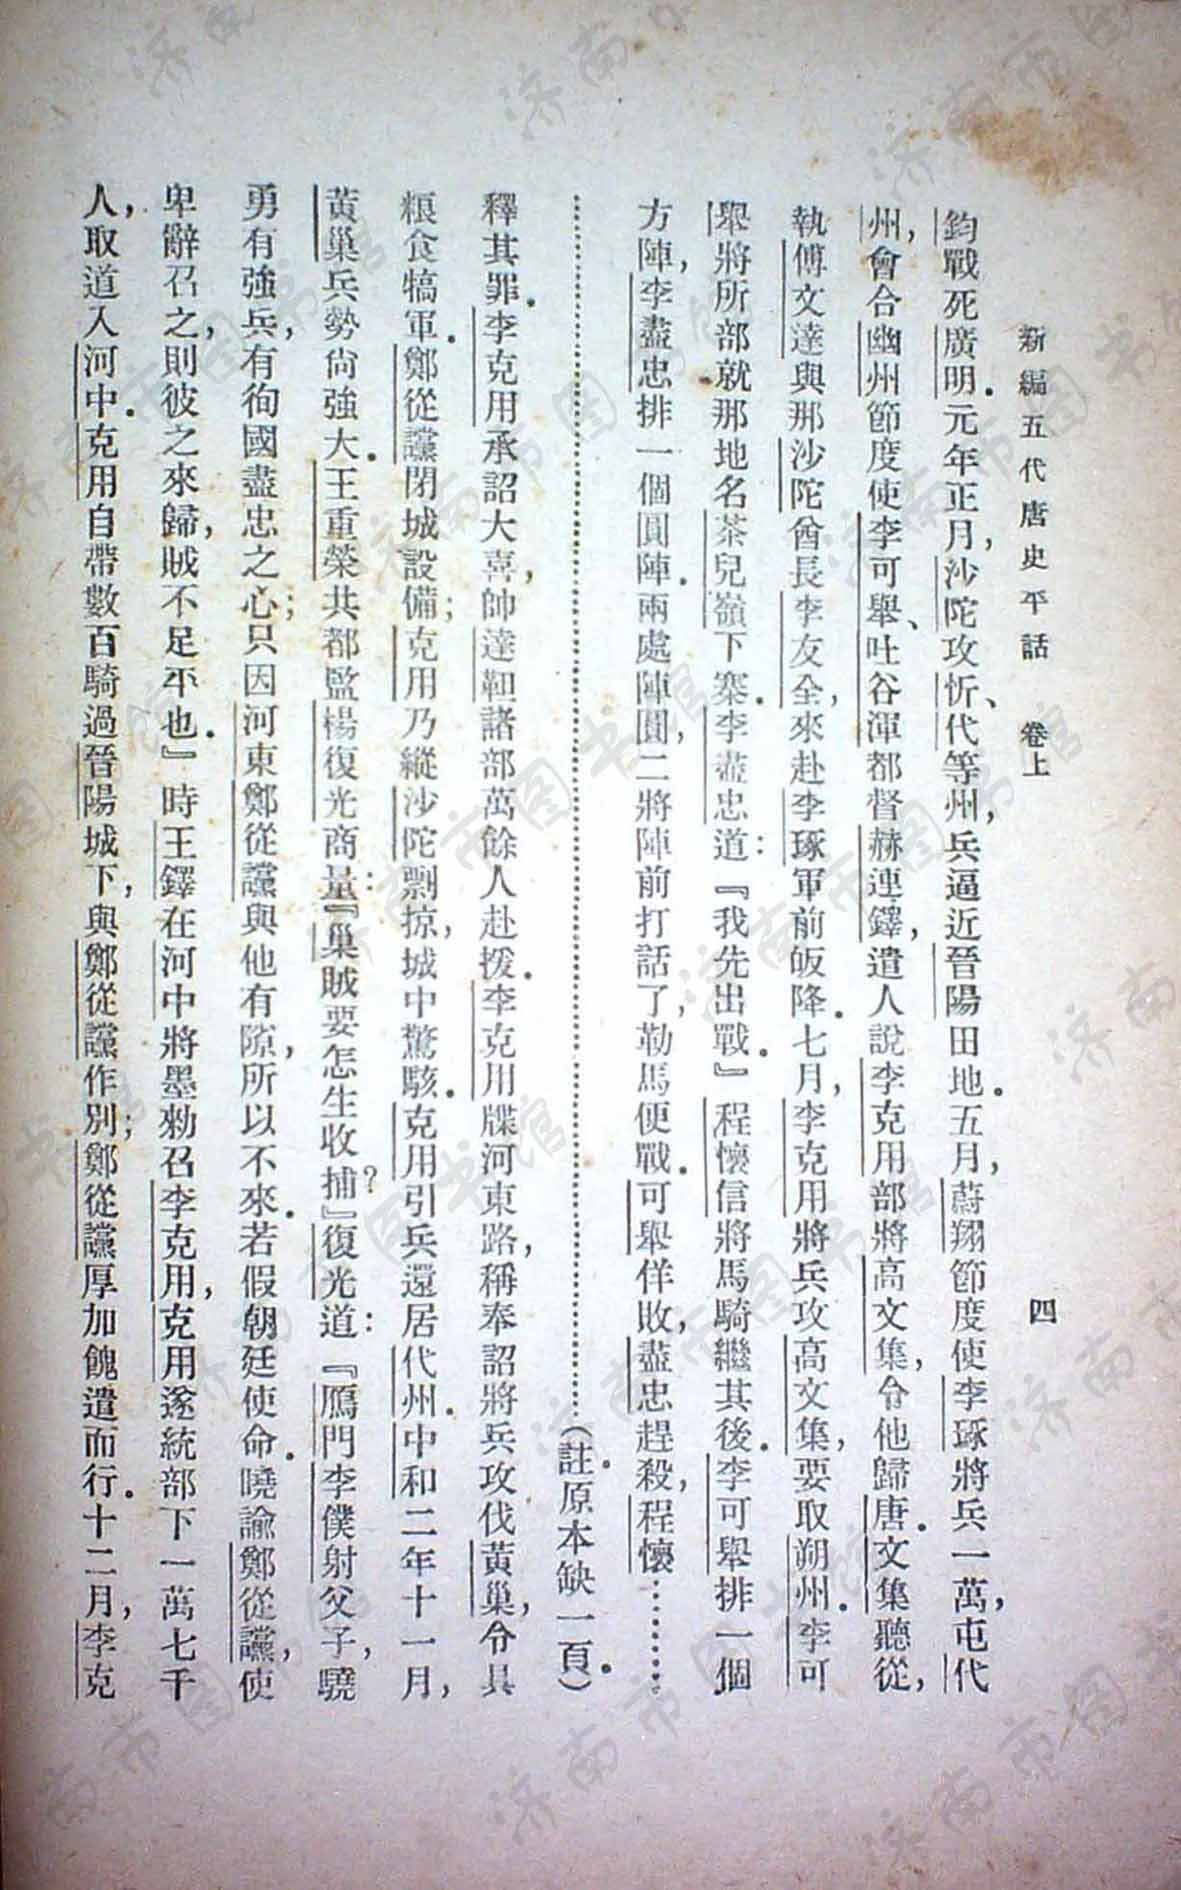 新編五代唐史平話　卷上　四
鈞戰死廣明．元年正月，沙陀攻忻、代等州，兵逼近晉陽田地．五月，蔚翔節度使李琢將兵一萬，屯代
州，會合幽州節度使李可舉、吐谷渾都督赫連鐸，遣人說李克用部將高文集，令他歸唐．文集聽從，
執傅文達與那沙陀酋長李友全，來赴李琢軍前皈降．七月，李克用將兵攻高文集，要取朔州．李可
舉將所部就那地名茶兒嶺下寨．李盡忠道：『我先出戰．』程懷信將馬騎繼其後．李可舉排一個
方陣，李盡忠排一個圓陣．兩處陣圓，二將陣前打話了，勒馬便戰．可舉佯敗，盡忠趕殺，程懷……
……（註．原本缺一頁．）
釋其罪．李克用承詔大喜，帥達靼諸部萬餘人赴援．李克用牒河東路，稱奉詔將兵攻伐黃巢，令具
粮食犒軍．鄭從讜閉城設備；克用乃縱沙陀剽掠，城中驚駭．克用引兵還居代州．中和二年十一月，
黃巢兵勢尙強大．王重榮共都監楊復光商量：『巢賊要怎生收捕？』復光道：『鴈門李僕射父子，驍
勇有強兵，有徇國盡忠之心；只因河東鄭從讜與他有隙，所以不來．若假朝廷使命．曉諭鄭從讜，使
卑辭召之，則彼之來歸，賊不足平也．』時王鐸在河中將墨勑召李克用，克用遂統部下一萬七千
人，取道入河中．克用自帶數百騎過晉陽城下，與鄭從讜作別；鄭從讜厚加餽遣而行．十二月，李克
濟南市图书馆